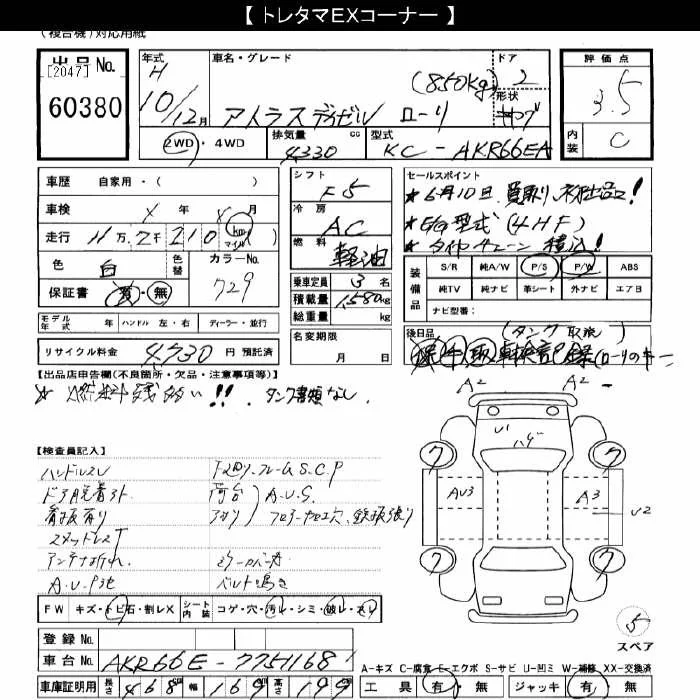 【 トレタマEXコーナー 】
(複合機)対応用紙
出品No.
[2047]
60380
年式 H 10/12月
車名・グレード アトラスディーゼル ローリー
(850kg)
ドア 2
形状
評価点 3.5
内装 C
2WD・4WD
排気量 4330 cc
型式 KC-AKR66EA
車歴 自家用・( )
車検 X 年 X 月
走行 万 千 210 km マイル
色 白 色替 カラーNo. 729
保証書 有・無
モデル年式 年 ハンドル 左・右 ディーラー・並行
リサイクル料金 4730 円 預託済
シフト F5
冷房 AC
燃料 軽油
乗車定員 3 名
積載量 1,580 kg
総重量 kg
名変期限 月 日
セールスポイント
★ 6月10日 買取り、初出品!
★ E/G型式 (4HF)
★ タイヤチェーン 積込!
装備品 S/R 純A/W P/S P/W ABS
純TV 純ナビ 革シート 外ナビ エアB
ナビ型番:
後日品 (タンク取説)
保 手 取 車検記録 (ローリーのキー
【出品店申告欄(不良箇所・欠品・注意事項等)】
★ 燃料残多い!! タンク書類なし
【検査員記入】
ハンドルスレ
ドア脱着外
看板有り
スタッドレスT
アンテナ折れ
A.U.P他
下回り・フレームS.C.P
荷台 A.U.S.
アオリ フロアーカロ穴、鉄板張り
ミラーカバーカ
ベルト鳴き
FW キズ・トビ石・割レX シート内装 コゲ・穴・汚レ・シミ・破レ・スレ
登録No.
車台No. AKR66E-7751168
車庫証明用 長さ 468 幅 169 高さ 199
A2 A2
U1
ハゲ
ワ ワ
AU3 A3
U2
ワ ワ
5
スペア
A-キズ C-腐食 E-エクボ S-サビ U-凹ミ W-補修 XX-交換済
工具 有・無 ジャッキ 有・無